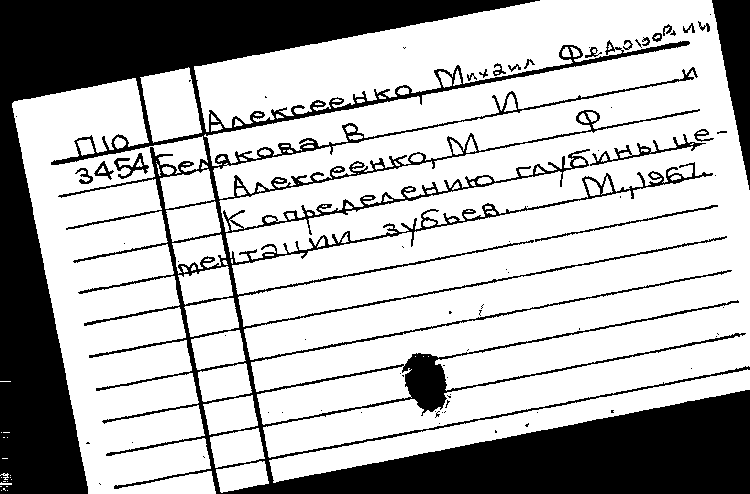 Алексеенко, Михаил Федорович
П10
3454 Белякова, В И и
Алексеенко, М Ф
К определению глубины це-
ментации зубьев. М., 1967.